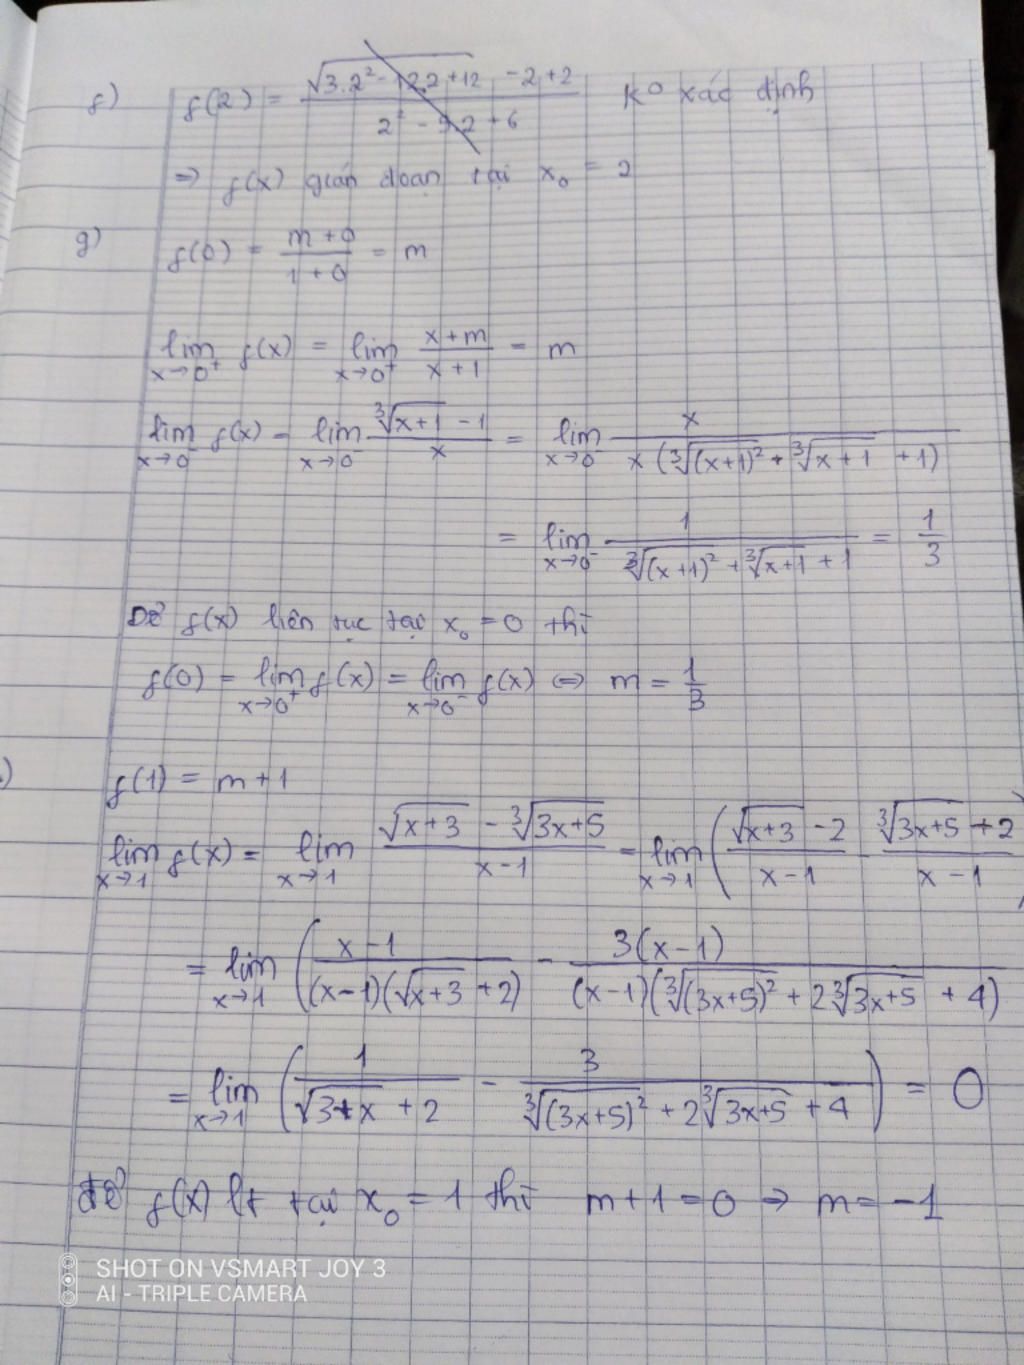 f) f(2) = √(3.2² - 12.2 + 12) - 2 + 2 / 2² - 5.2 + 6 Ko xác định
⇒ f(x) gián đoạn tại x₀ = 2
g) f(0) = m + 0 / 1 + 0 = m
lim x→0⁺ f(x) = lim x→0⁺ x + m / x + 1 = m
lim x→0⁻ f(x) = lim x→0⁻ ∛(x+1) - 1 / x = lim x→0⁻ x / x (∛(x+1)² + ∛(x+1) + 1)
= lim x→0⁻ 1 / ∛(x+1)² + ∛(x+1) + 1 = 1/3
Để f(x) liên tục tại x₀ = 0 thì
f(0) = lim x→0⁺ f(x) = lim x→0⁻ f(x) ⇔ m = 1/3
) f(1) = m + 1
lim x→1 f(x) = lim x→1 √(x+3) - ∛(3x+5) / x - 1 = lim x→1 (√(x+3) - 2 / x - 1 - ∛(3x+5) + 2 / x - 1)
= lim x→1 (x - 1 / (x-1)(√(x+3) + 2) - 3(x-1) / (x-1)(∛(3x+5)² + 2∛(3x+5) + 4)
= lim x→1 (1 / √(3+x) + 2 - 3 / ∛(3x+5)² + 2∛(3x+5) + 4) = 0
để f(x) lt tại x₀ = 1 thì m + 1 = 0 ⇒ m = -1
SHOT ON VSMART JOY 3
AI - TRIPLE CAMERA